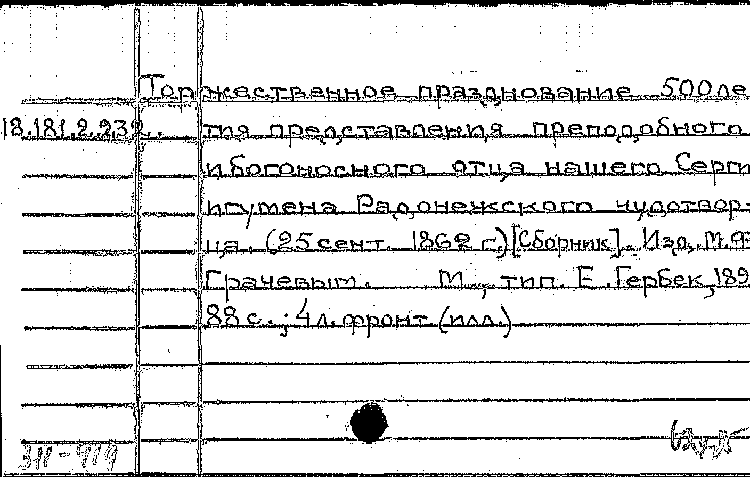 Торжественное празднование 500ле
18.181.2.232. тия представления преподобного
и богоносного отца нашего Серги
игумена Радонежского чудотвор-
ца. (25 сент. 1862 г.) [Сборник]. Изд. М.Ф
Грачевым. М., тип. Е. Гербек, 189
88 с.; 4 л. фронт. (илл.)
311-419